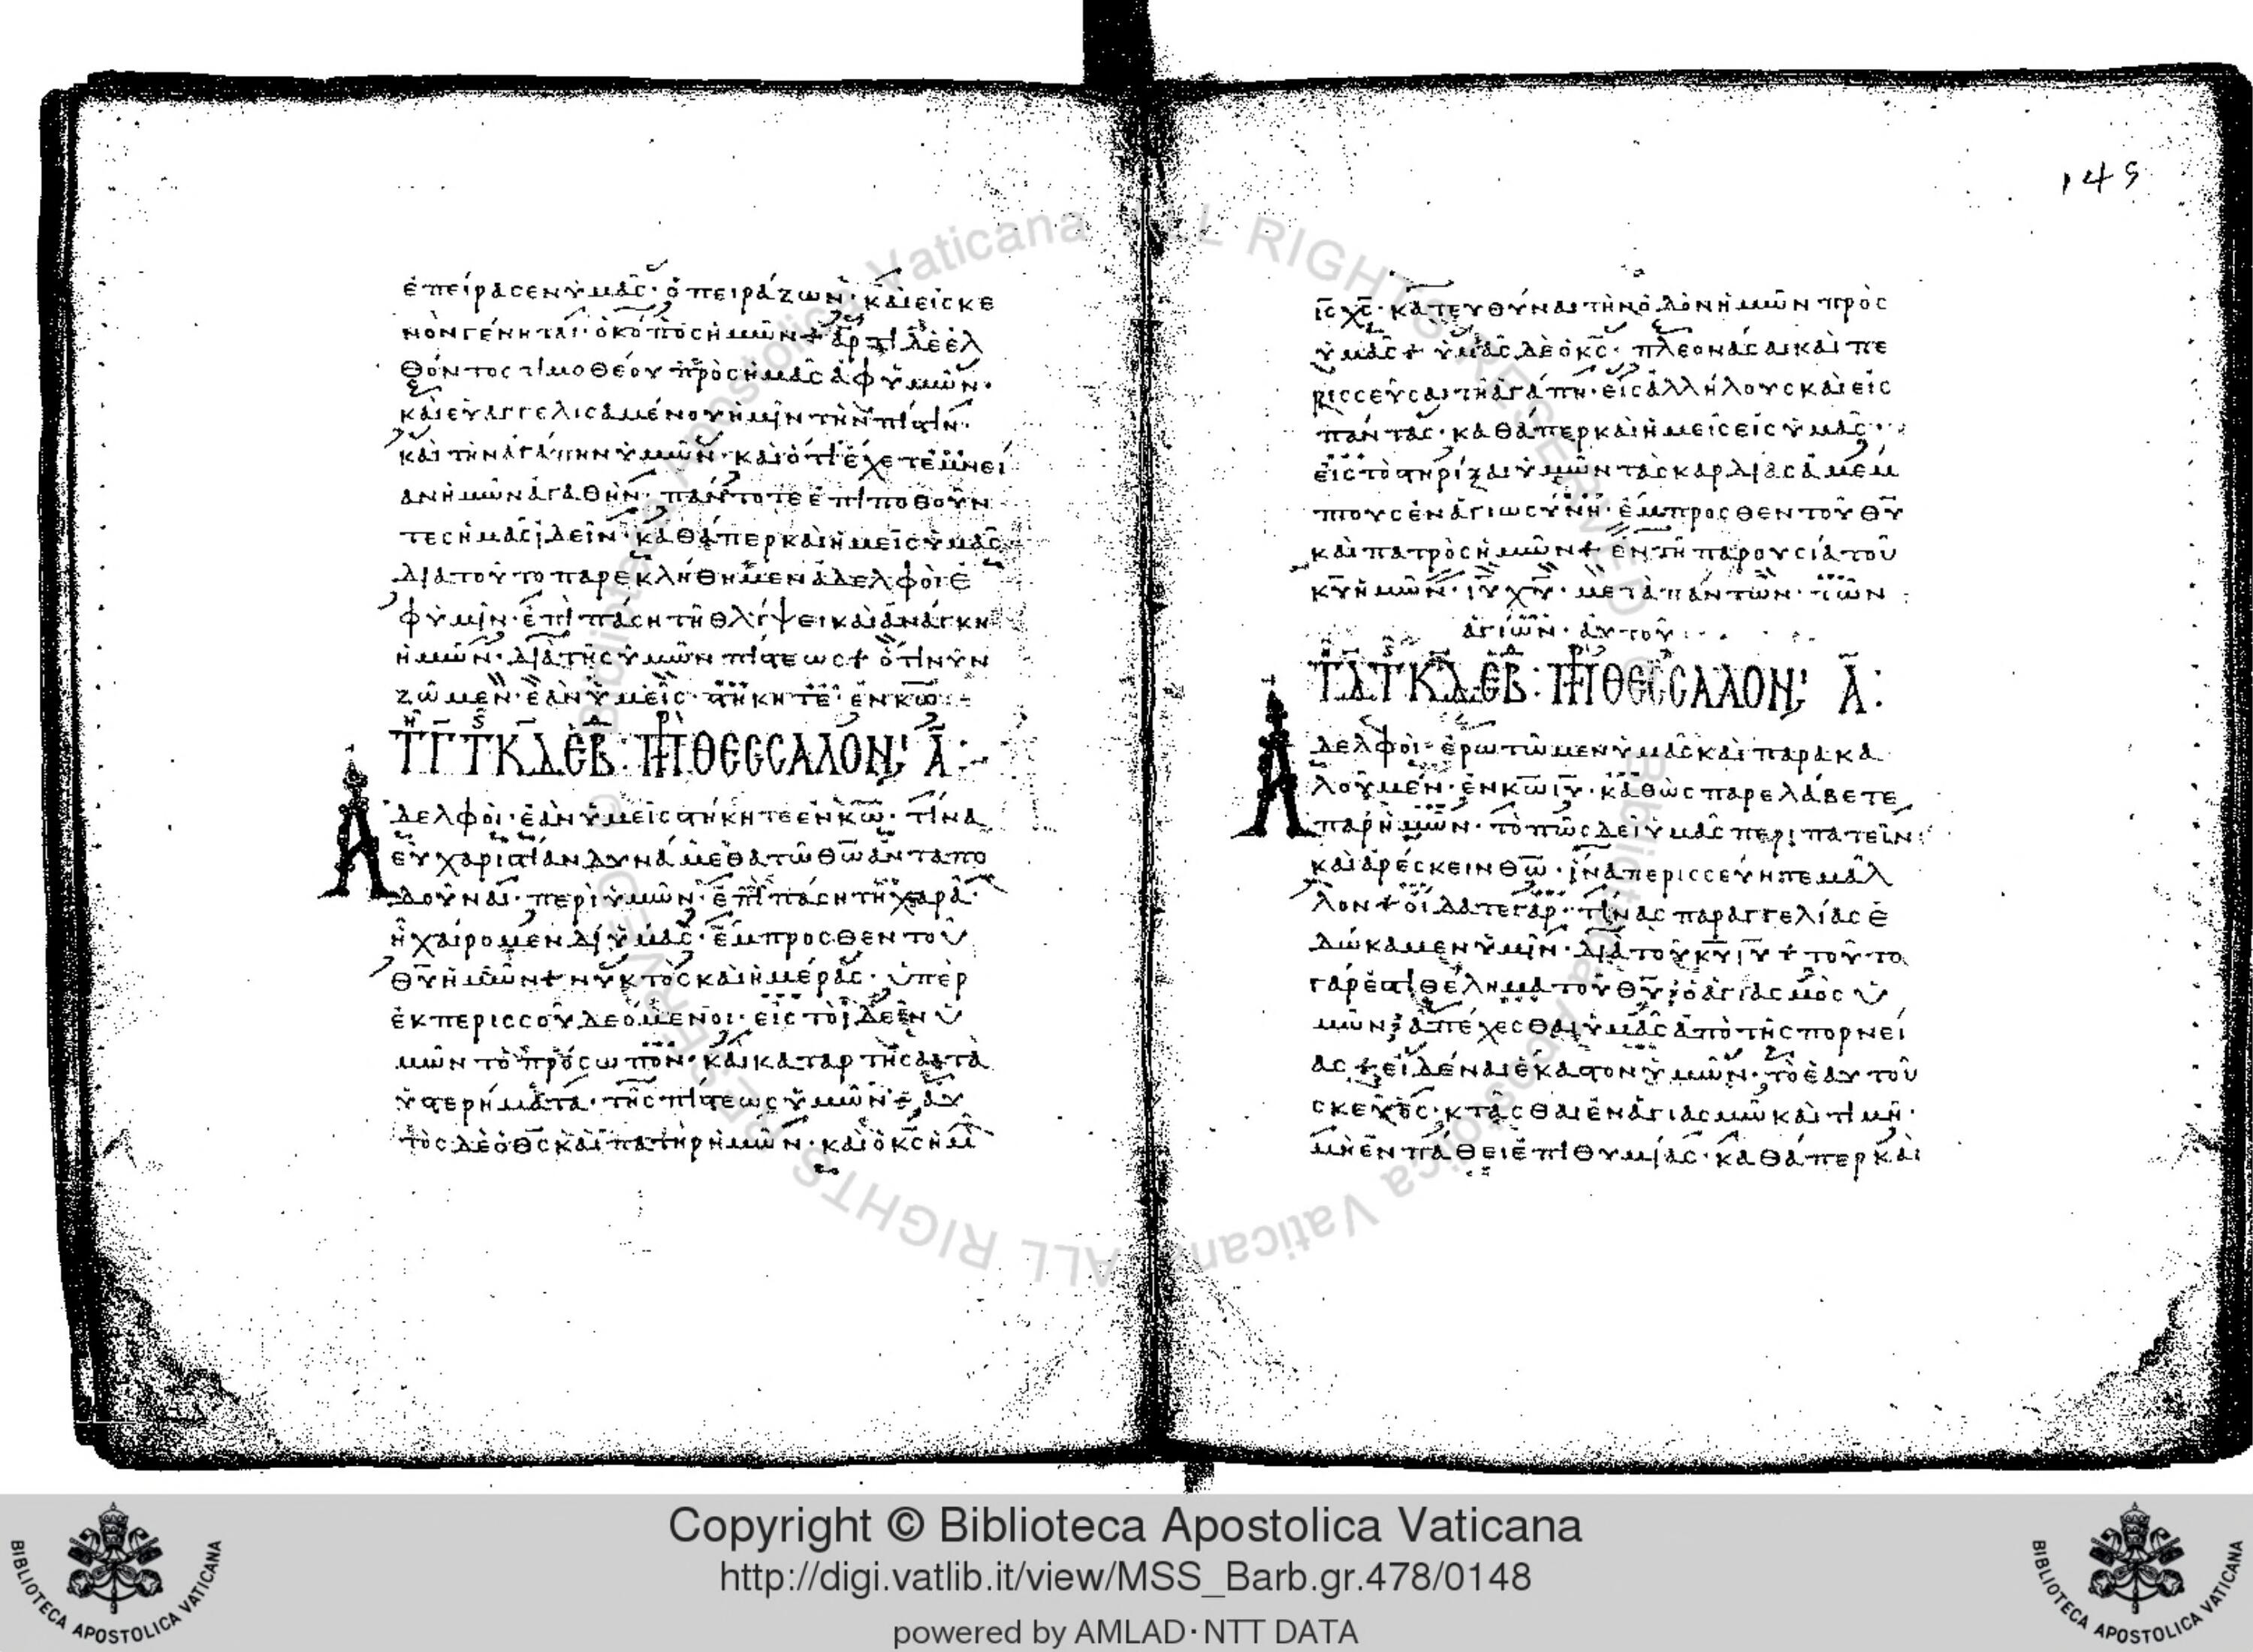 ἐπείρασεν ὑμᾶς· ὁ πειράζων· καὶ εἰς κε
νὸν γένηται· ὁ κόπος ἡμῶν + ἄρτι δὲ ἐλ
θόντος τιμοθέου πρὸς ἡμᾶς ἀφ ὑμῶν·
καὶ εὐαγγελισαμένου ἡμῖν τὴν πίστιν·
καὶ τὴν ἀγάπην ὑμῶν· καὶ ὅτι ἔχετε μνεί
αν ἡμῶν ἀγαθὴν· πάντοτε ἐπιποθοῦν
τες ἡμᾶς ἰδεῖν· καθάπερ καὶ ἡμεῖς ὑμᾶς·
διατοῦτο παρεκλήθημεν ἀδελφοὶ ἐ
φ ὑμῖν· ἐπὶ πάση τῆ θλίψει καὶ ἀνάγκη
ἡμῶν· διὰ τῆς ὑμῶν πίστεως + ὅτι νῦν
ζῶμεν· ἐὰν ὑμεῖς· στήκητε· ἐν κ̅ω̅:-
ΘΕϹϹΑΛΟΝ Α̅:-
Ἀδελφοὶ· ἐὰν ὑμεῖς στήκητε ἐν κ̅ω̅· τίνα
εὐχαριστίαν δυνάμεθα τῶ θ̅ω̅ ἀνταπο
δοῦναι· περὶ ὑμῶν· ἐπὶ πάση τῆ χαρᾶ·
ἧ χαίρομεν δι ὑμᾶς· ἔμπροσθεν τοῦ
θ̅υ̅ ἡμῶν + νυκτὸς καὶ ἡμέρας· ὑπὲρ
ἐκπερισσοῦ δεόμενοι· εἰς τὸ ἰδεῖν ὑ
μῶν τὸ πρόσωπον· καὶ καταρτῆσαι τὰ
ὑστερήματα· τῆς πίστεως ὑμῶν + αὐ
τὸς δὲ ὁ θ̅ς̅ καὶ πατὴρ ἡμῶν· καὶ ὁ κ̅ς̅ ἡμ
145
ι̅ς̅ χ̅ς̅· κατευθύναι τὴν ὁδὸν ἡμῶν πρὸς
ὑμᾶς + ὑμᾶς δὲ ὁ κ̅ς̅· πλεονάσαι καὶ πε
ρισσεῦσαι τῆ ἀγάπη· εἰς ἀλλήλους καὶ εἰς
πάντας· καθάπερ καὶ ἡμεῖς εἰς ὑμᾶς·
εἰς τὸ στηρίξαι ὑμῶν τὰς καρδίας ἀμέμ
πτους ἐν ἁγιωσύνη· ἔμπροσθεν τοῦ θ̅υ̅
καὶ πατρὸς ἡμῶν + ἐν τῆ παρουσία τοῦ
κ̅υ̅ ἡμῶν· ι̅υ̅ χ̅υ̅· μετὰ πάντων· τῶν
ἁγίων· αὐτοῦ:
ΘΕϹϹΑΛΟΝ Α̅:
Ἀδελφοὶ· ἐρωτῶμεν ὑμᾶς καὶ παρακα
λοῦμεν· ἐν κ̅ω̅ ι̅υ̅· καθὼς παρελάβετε
παρ ἡμῶν· τὸ πῶς δεῖ ὑμᾶς περιπατεῖν·
καὶ ἀρέσκειν θ̅ω̅· ἵνα περισσεύητε μᾶλ
λον + οἴδατε γάρ· τίνας παραγγελίας ἐ
δώκαμεν ὑμῖν· διὰ τοῦ κ̅υ̅ ι̅υ̅ + τοῦτο
γάρ ἐστι θέλημα τοῦ θ̅υ̅· ὁ ἁγιασμὸς ὑ
μῶν· ἀπέχεσθαι ὑμᾶς ἀπὸ τῆς πορνεί
ας + εἰδέναι ἕκαστον ὑμῶν· τὸ ἑαυτοῦ
σκεῦος· κτᾶσθαι ἐν ἁγιασμῶ καὶ τιμῆ·
μὴ ἐν πάθει ἐπιθυμίας· καθάπερ καὶ
Copyright © Biblioteca Apostolica Vaticana
http://digi.vatlib.it/view/MSS_Barb.gr.478/0148
powered by AMLAD·NTT DATA
BIBLIOTECA APOSTOLICA VATICANA
BIBLIOTECA APOSTOLICA VATICANA